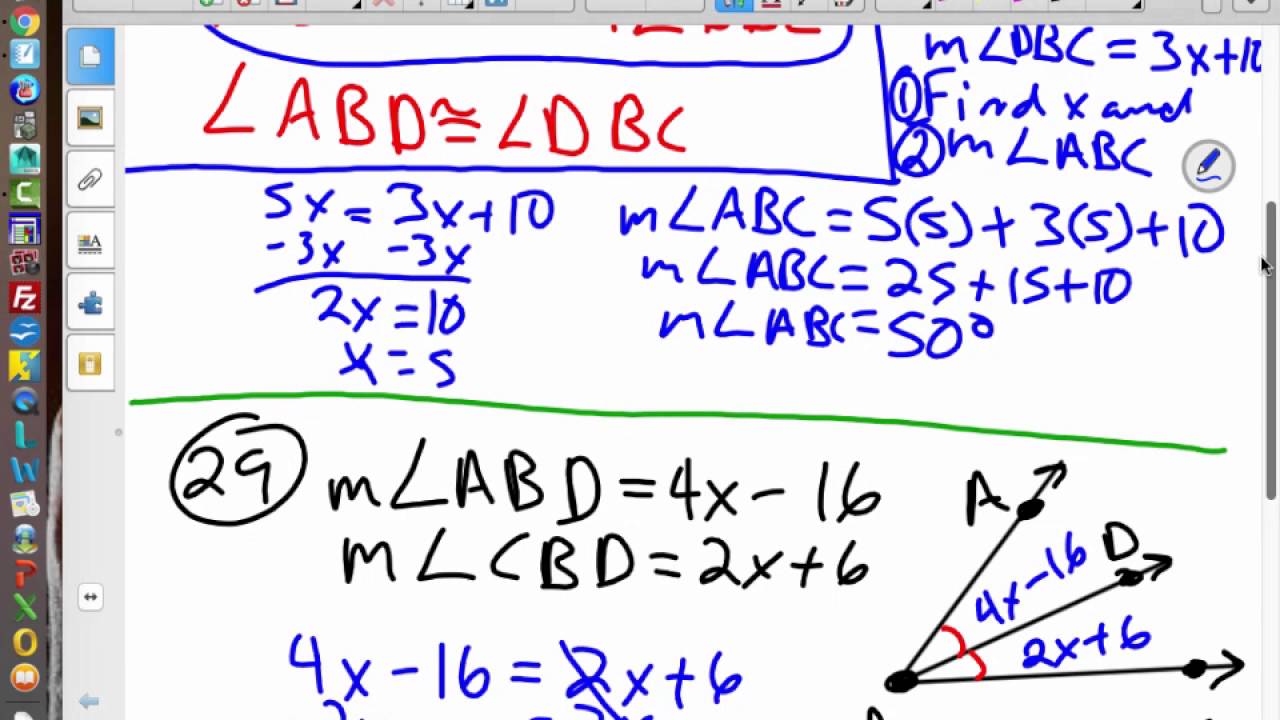 m∠DBC = 3x+10
①Find x and
②m∠ABC
∠ABD≅∠DBC
5x = 3x+10
-3x -3x
2x = 10
x = 5
m∠ABC = 5(5) + 3(5)+10
m∠ABC = 25+15+10
m∠ABC = 50°
29 m∠ABD = 4x - 16
m∠CBD = 2x+6
A
D
4x-16
2x+6
4x-16 = 2x+6